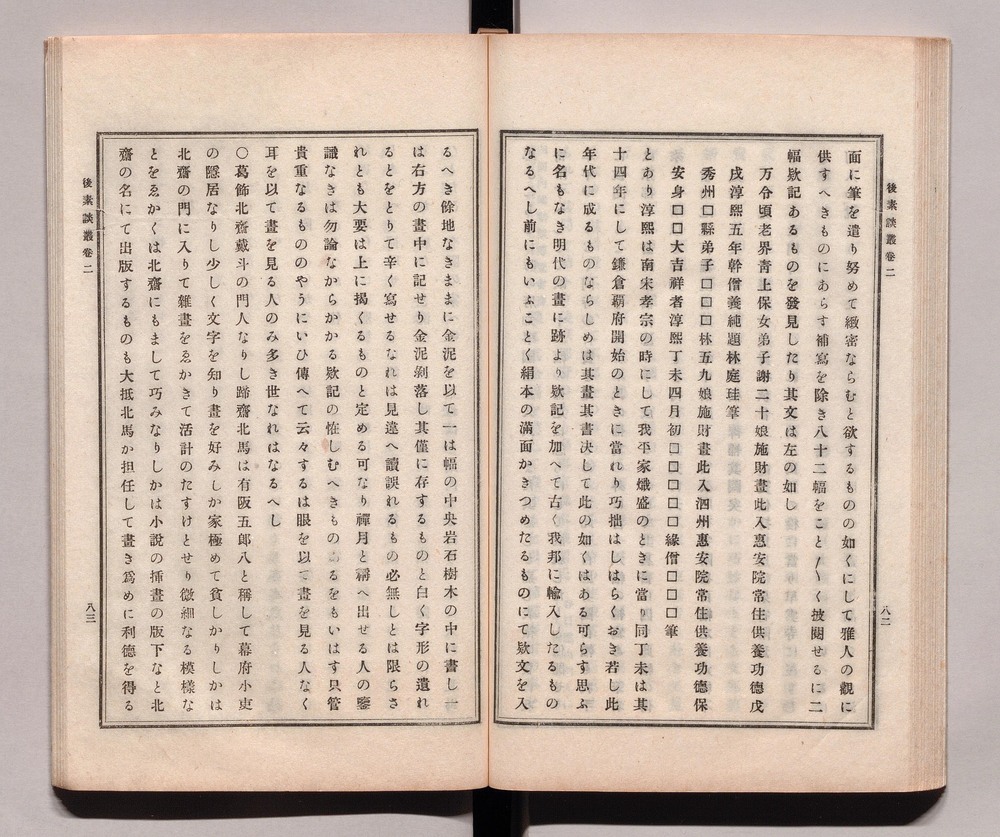 後素談叢卷二
八二
面に筆を遣り努めて緻密ならむと欲するものの如くにして雅人の觀に
供すへきものにあらす補寫を除き八十二幅をこと〳〵く披閱せるに二
幅欵記あるものを發見したり其文は左の如し
万令頃老界靑上保女弟子謝二十娘施財畫此入惠安院常住供養功德戊
戌淳熙五年幹僧義純題林庭珪筆
秀州口縣弟子口口口林五九娘施財畫此入泗州惠安院常住供養功德保
安身口口大吉祥者淳熙丁未四月初口口口口口緣僧口口口筆
とあり淳熙は南宋孝宗の時にして我平家熾盛のときに當り同丁未は其
十四年にして鎌倉覇府開始のときに當れり巧拙はしはらくおき若し此
年代に成るものならしめは其畫其書決して此の如くはある可らす思ふ
に名もなき明代の畫に跡より欵記を加へて古く我邦に輸入したるもの
なるへし前にもいふことく絹本の滿面かきつめたるものにて欵文を入
るへき餘地なきままに金泥を以て一は幅の中央岩石樹木の中に書し一
は右方の畫中に記せり金泥剝落し其僅に存するものと白く字形の遺れ
るとをとりて辛く寫せるなれは見違へ讀誤れるもの必無しとは限らさ
れとも大要は上に揭くるものと定める可なり禪月と稱へ出せる人の鑒
識なきは勿論なからかかる欵記の恠しむへきものあるをもいはす只管
貴重なるもののやうにいひ傳へて云々するは眼を以て畫を見る人なく
耳を以て畫を見る人のみ多き世なれはなるへし
〇葛飾北齋戴斗の門人なりし蹄齋北馬は有阪五郞八と稱して幕府小吏
の隱居なりし少しく文字を知り畫を好みしか家極めて貧しかりしかは
北齋の門に入りて雜畫をゑかきて活計のたすけとせり微細なる模樣な
とをゑかくは北齋にもまして巧みなりしかは小說の揷畫の版下なと北
齋の名にて出版するものも大抵北馬か担任して畫き爲めに利德を得る
後素談叢卷二
八三